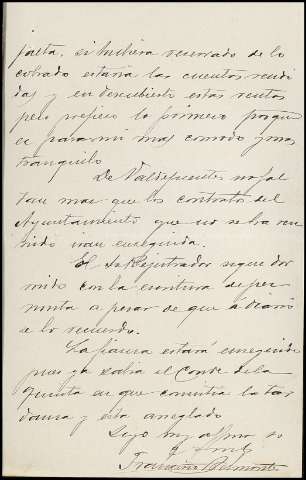 falta. si hubiera reservado de lo
cobrado estaria las cuentas rendi
das y en descubierto estas rentas
pero prefiero lo primero porque
es para mi mas comodo y mas
tranquilo
De Valdefuentes no fal
tan mas que los contratos del
Ayuntamiento que no se han reu
nido iran enseguida.
El Sr Rejistrador sigue dor
mido con la escritura de per
muta a pesar de que á diario
se lo recuerdo.
La fianza estará enseguida
pues ya sabia el Conde de la
Quinta en que consistia la tar
danza y esta arreglado
Sigo muy affmo
Francisco Belmonte